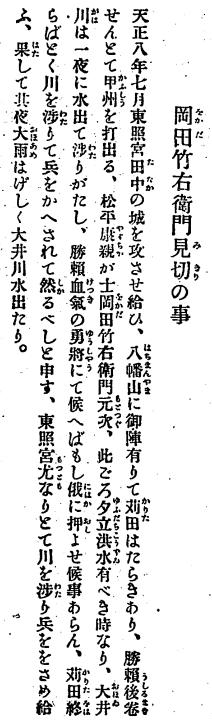 岡田竹右衛門見切の事
天正八年七月東照宮田中の城を攻させ給ひ、八幡山に御陣有りて苅田はたらきあり、勝頼後巻
せんとて甲州を打出る、松平康親が士岡田竹右衛門元次、此ごろ夕立洪水有べき時なり、大井
川は一夜に水出て渉りがたし、勝頼血氣の勇將にて候へばもし俄に押よせ候事あらん、苅田終
らばとく川を渉りて兵をかへされて然るべしと申す、東照宮尤なりとて川を渉り兵ををさめ給
ふ、果して其夜大雨はげしく大井川水出たり。